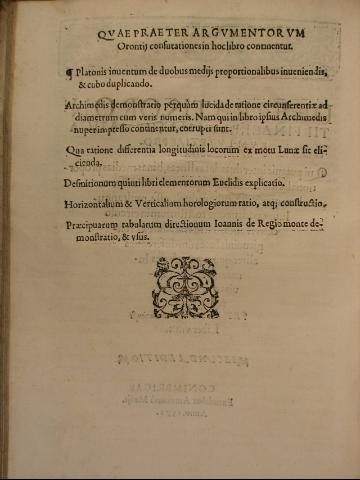 QVAE PRAETER ARGVMENTORVM
Orontij confutationes in hoc libro continentur.
¶ Platonis inuentum de duobus medijs proportionalibus inueniendis,
& cubo duplicando.
Archimedis demonstratio perquàm lucida de ratione circunferentiæ ad
diametrum cum veris numeris. Nam qui in libro ipsius Archimedis
nuper impresso continentur, corrupti sunt.
Qua ratione differentia longitudinis locorum ex motu Lunæ sit eli-
cienda.
Definitionum quinti libri elementorum Euclidis explicatio.
Horizontalium & Verticalium horologiorum ratio, atq; constructio.
Præcipuarum tabularum directionum Ioannis de Regio monte de-
monstratio, & vsus.